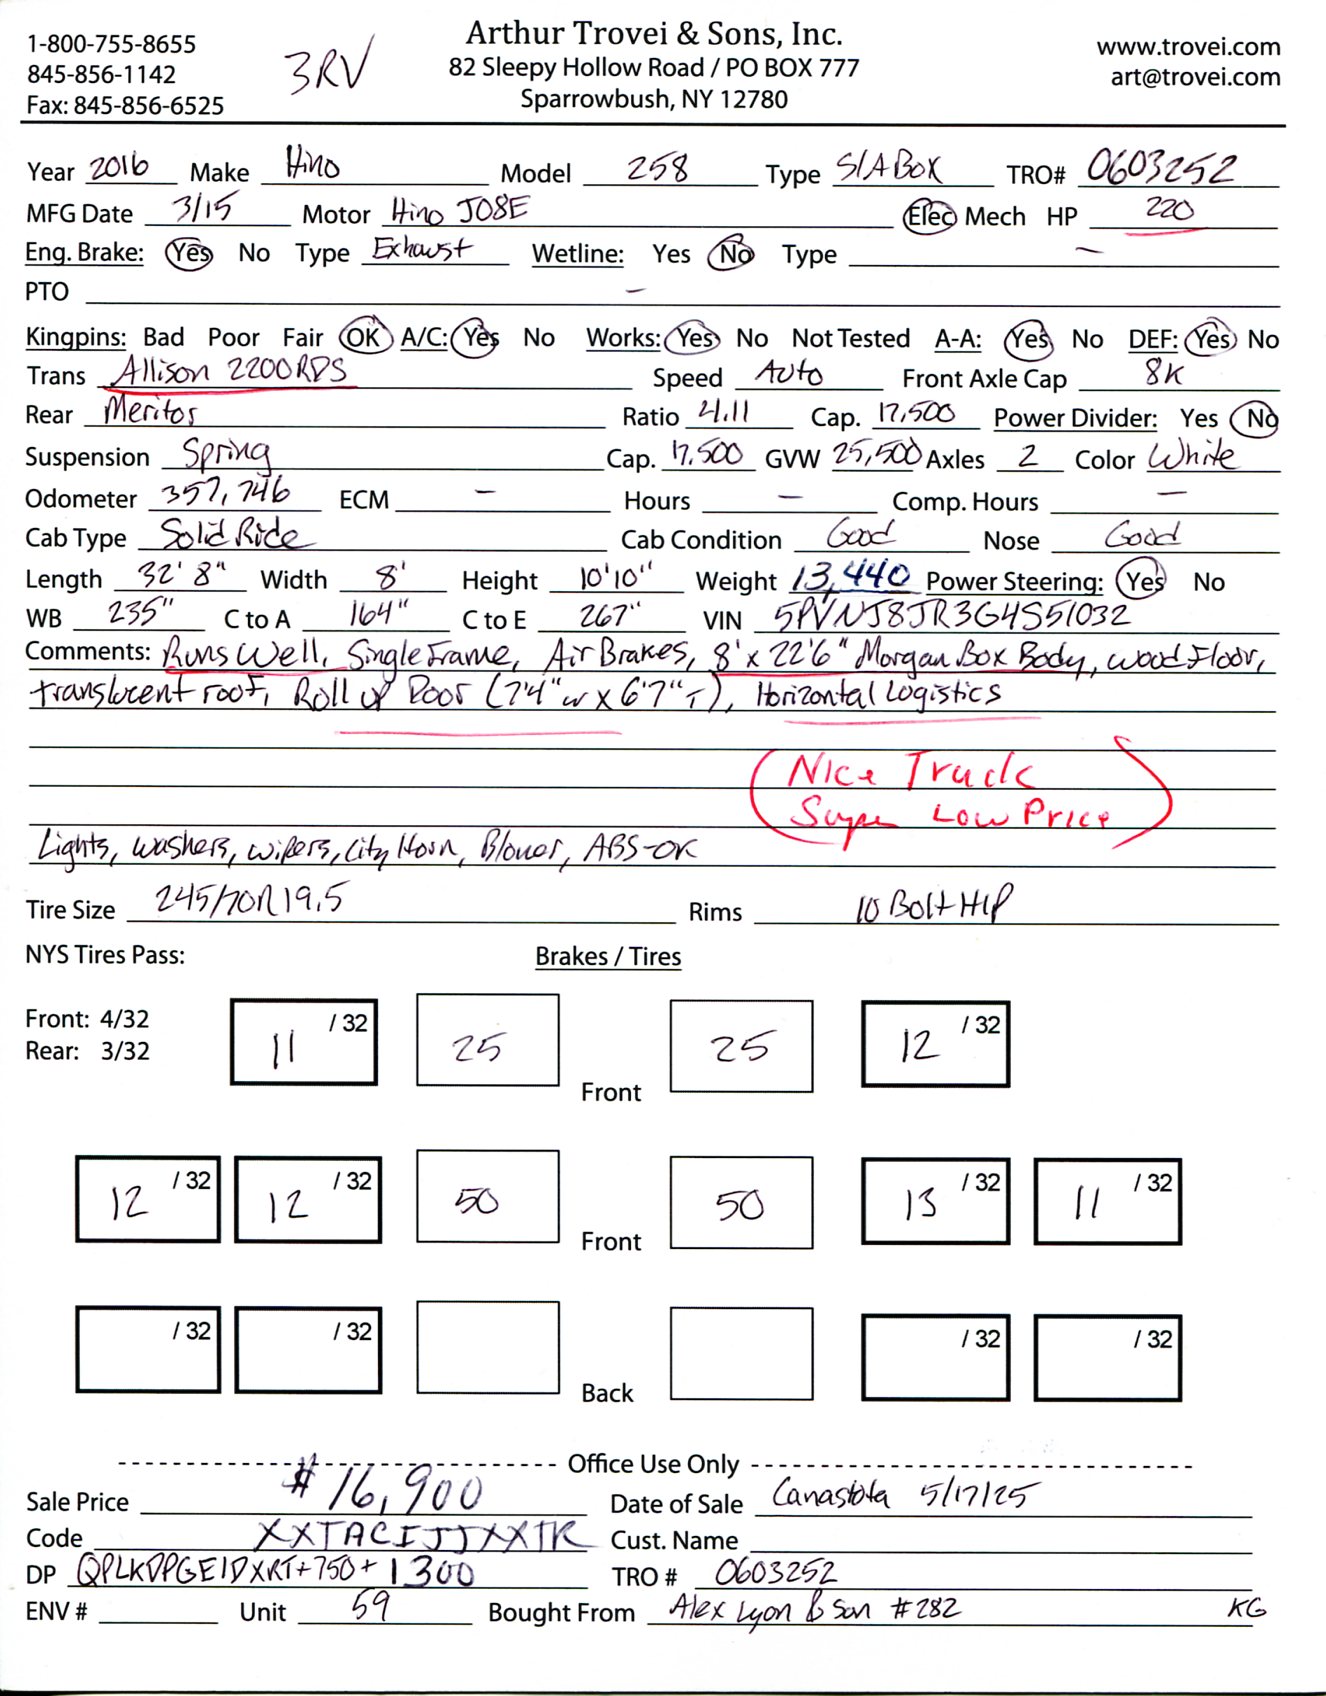 1-800-755-8655
845-856-1142
Fax: 845-856-6525
3RV
Arthur Trovei & Sons, Inc.
82 Sleepy Hollow Road / PO BOX 777
Sparrowbush, NY 12780
www.trovei.com
art@trovei.com
Year 2016 Make Hino Model 258 Type S/A Box TRO# 0603252
MFG Date 3/15 Motor Hino J08E Elec Mech HP 220
Eng. Brake: Yes No Type Exhaust Wetline: Yes No Type –
PTO –
Kingpins: Bad Poor Fair OK A/C: Yes No Works: Yes No Not Tested A-A: Yes No DEF: Yes No
Trans Allison 2200RDS Speed Auto Front Axle Cap 8K
Rear Meritor Ratio 4.11 Cap. 17,500 Power Divider: Yes No
Suspension Spring Cap. 17,500 GVW 25,500 Axles 2 Color White
Odometer 357,746 ECM – Hours – Comp. Hours –
Cab Type Solid Ride Cab Condition Good Nose Good
Length 32' 8" Width 8' Height 10'10" Weight 13,440 Power Steering: Yes No
WB 235" C to A 164" C to E 267" VIN 5PVNJ8JR3G4S51032
Comments: Runs Well, Single Frame, Air Brakes, 8' x 22'6" Morgan Box Body, wood Floor,
translucent roof, Roll up Door (7'4" w x 6'7" T), Horizontal Logistics
Nice Truck
Super Low Price
Lights, washers, wipers, City Horn, Blower, ABS-OK
Tire Size 245/70R19.5 Rims 10 Bolt HP
NYS Tires Pass: Brakes / Tires
Front: 4/32
Rear: 3/32
11 /32 25 Front 25 12 /32
12 /32 12 /32 50 Front 50 13 /32 11 /32
/ 32 / 32 Back / 32 / 32
Office Use Only
Sale Price $16,900 Date of Sale Canastota 5/17/25
Code XXTACIJJXXTK Cust. Name
DP QPLKDPGEIDXRT+750+1300 TRO # 0603252
ENV # Unit 59 Bought From Alex Lyon & Son #282 KG